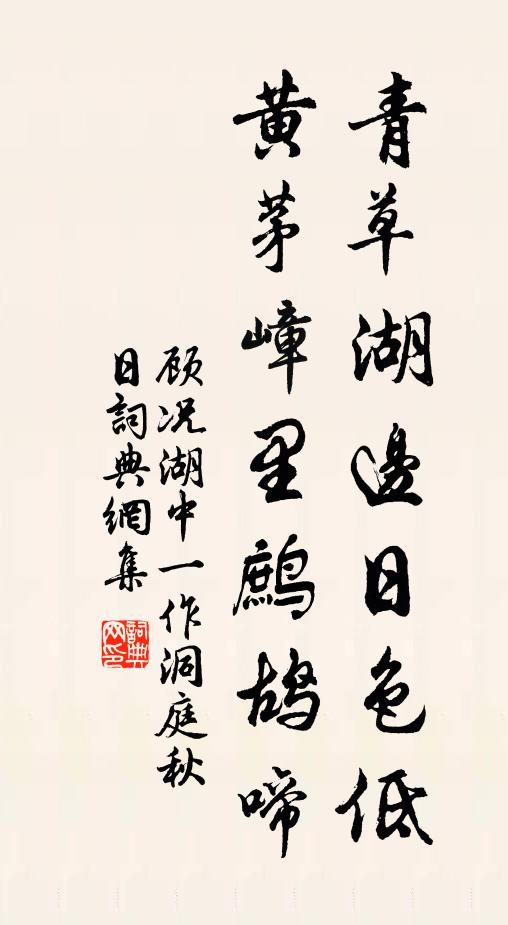 青草湖邊日色低
黃茅嶂里鷓鴣啼
顾况湖中一作洞庭秋
日詞典網集
詞典网印